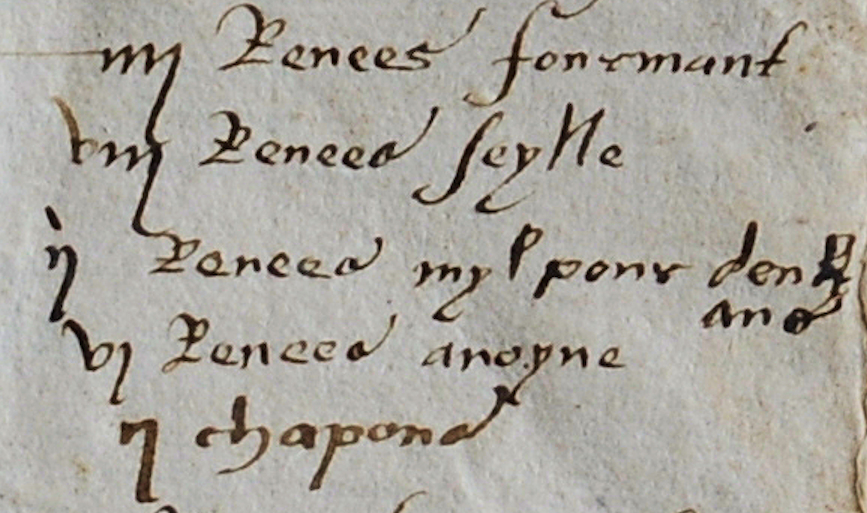 iiij Renees fourmant
viij Renees seylle
ij Renees myl pour deux
ans
vj Renees avoyne
ij chapons